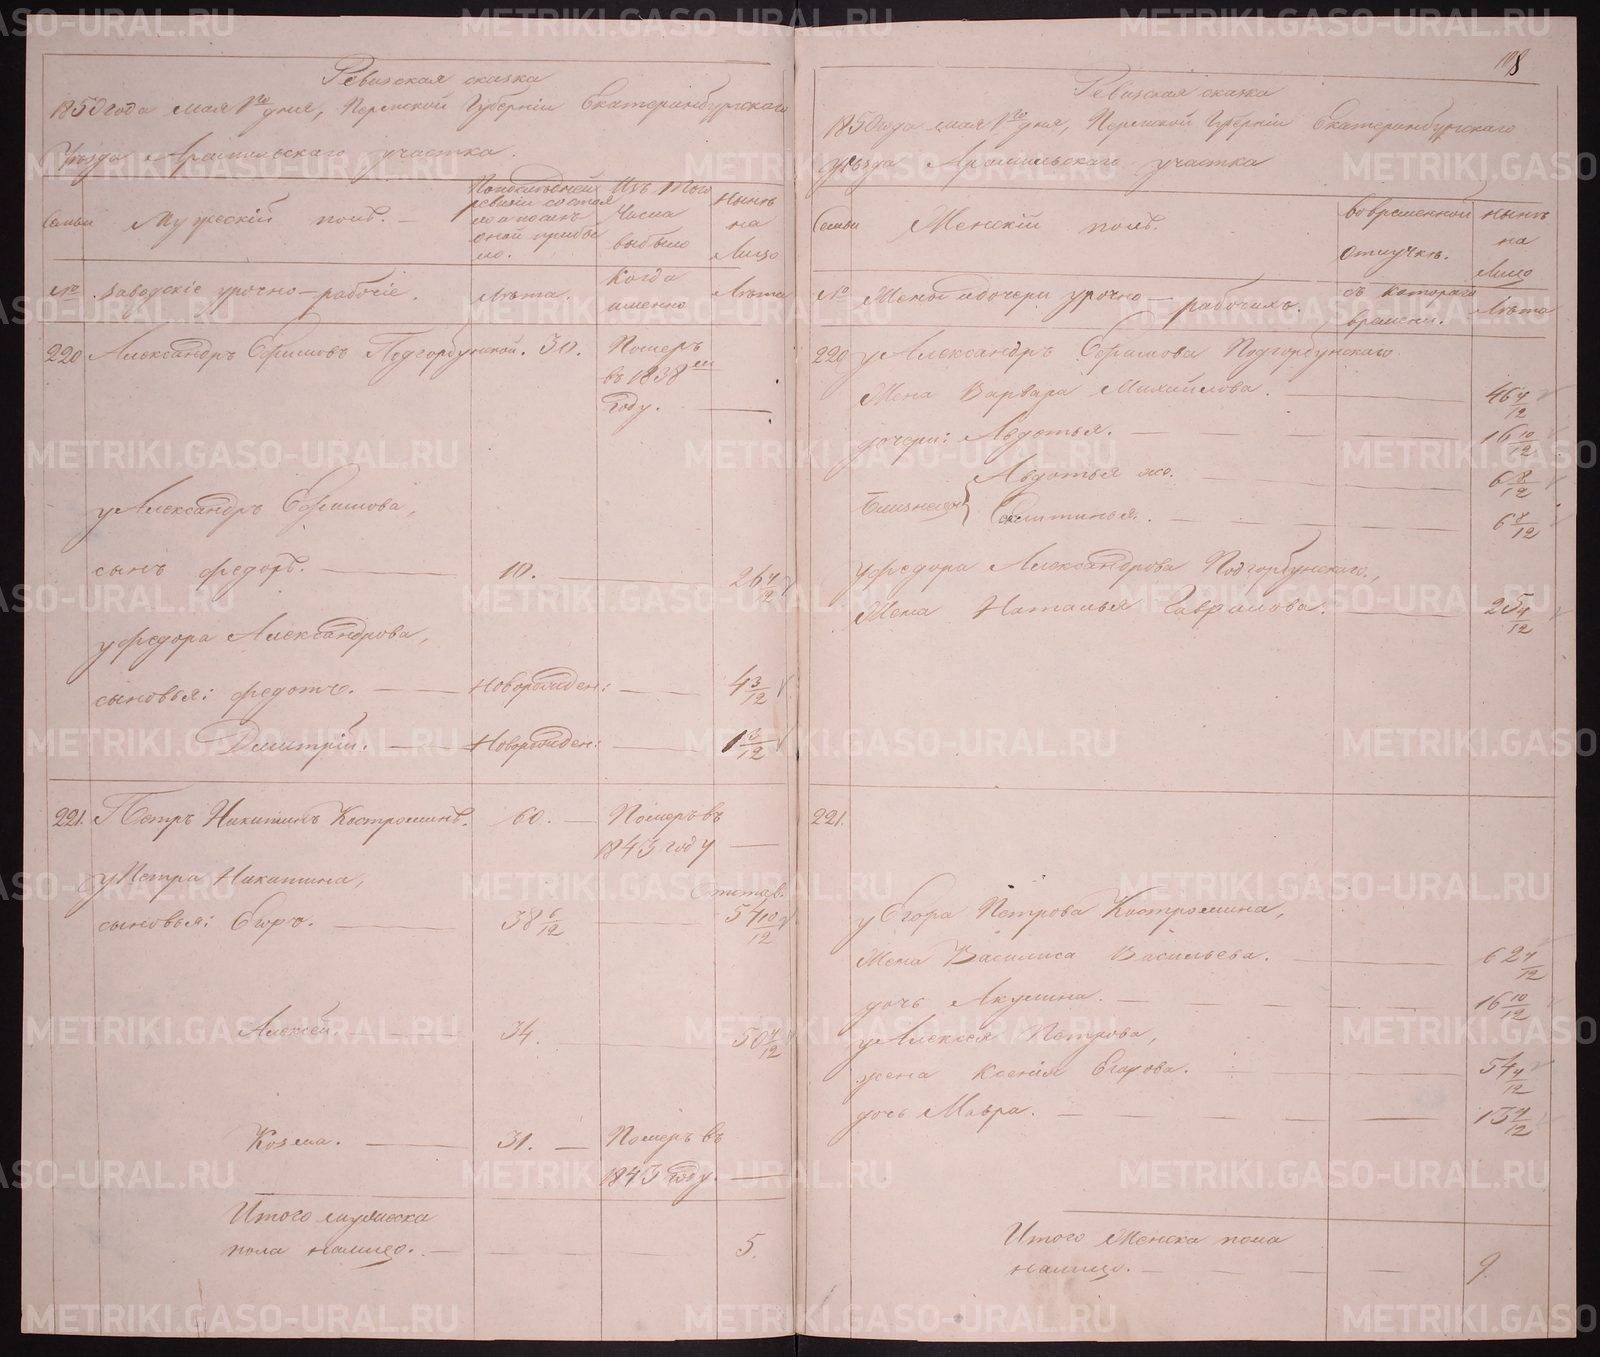 108
Ревизская сказка
1850 года мая 1го дня, Пермской Губерніи Екатеринбургскаго
Уѣзда Арамильскаго участка.
Семьи
Мужескій полъ.
По последней ревизіи состояло и после оной прибыло.
Изъ того числа выбыло
Нынѣ на лицо
№
Заводскіе урочно-рабочіе.
Лѣта.
Когда именно
Лѣта
220 Александръ Ефимовъ Подгорбунской. 30. Померъ
въ 1838м
году.
у Александра Ефимова,
сынъ Федоръ. 10. 26 4/12
у Федора Александрова,
сыновья: Федотъ. Новорожден: 4 3/12
Дмитрій. Новорожден: 1 3/12
221. Петръ Никитинъ Костроминъ. 60. Померъ въ
1843 году
у Петра Никитина,
Отстав.
сыновья: Егоръ. 38 6/12 54 10/12
Алексей. 34. 50 4/12
Козма. 31. Померъ въ
1843 году.
Итого мужеска
пола налицо. 5.
Ревизская сказка
1850 года мая 1го дня, Пермской Губерніи Екатеринбургскаго
уѣзда Арамильскаго участка
Семьи
Женскій полъ.
Во временной отлучкѣ.
Нынѣ на лицо
№
Жены и дочери урочно-рабочихъ.
Съ котораго времени.
Лѣта
220 у Александръ Ефимова Подгорбунскаго
Жена Варвара Михайлова. 46 4/12
дочери: Авдотья. 16 10/12
Близнецы
Авдотья же. 6 8/12
6 4/12
у Федора Александрова Подгорбунскаго,
Жена Наталья Гаврилова. 25 4/12
221.
у Егора Петрова Костромина,
Жена Василиса Васильева. 62 4/12
дочь Акулина. 16 10/12
у Алексея Петрова,
жена Ксенія Егорова. 54 4/12
дочь Мавра. 13 4/12
Итого Женска пола
налицо. 9.
METRIKI.GASO-URAL.RU